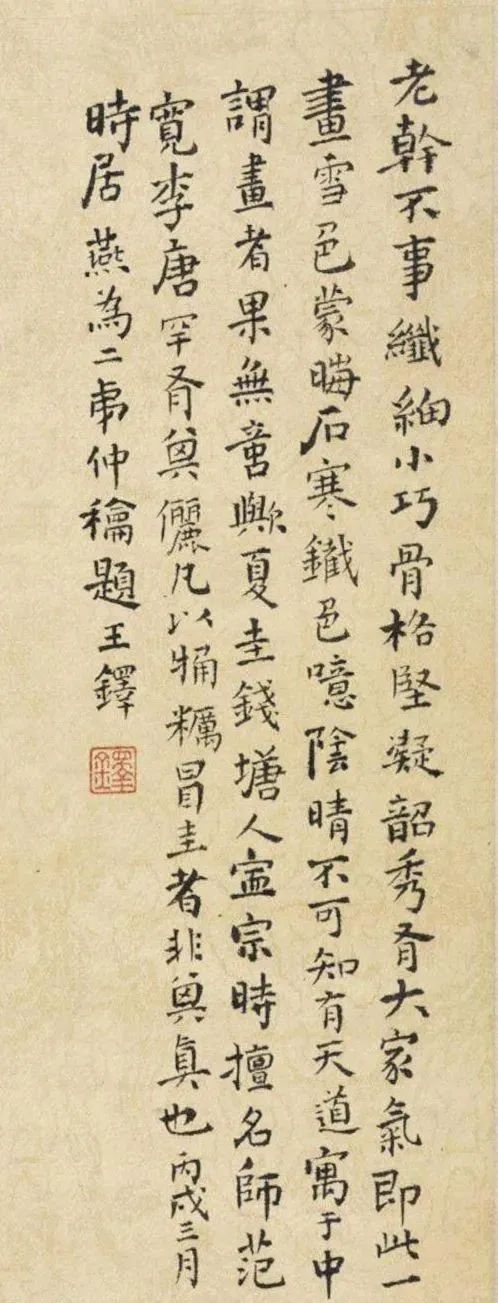 老幹不事纖細小巧骨格堅凝韶秀有大家氣即此一
畫雪色蒙晦石寒鐵色噫陰晴不可知有天道寓于中
謂畫者果無言歟夏圭錢塘人寍宗時擅名師范
寬李唐罕有其儷凡以觕糲冒圭者非其真也丙戌三月
時居燕為二弟仲龢題王鐸
鐸